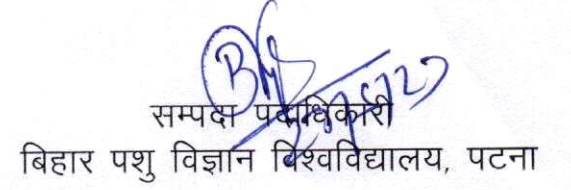 सम्पदा पदाधिकारी
बिहार पशु विज्ञान विश्वविद्यालय, पटना